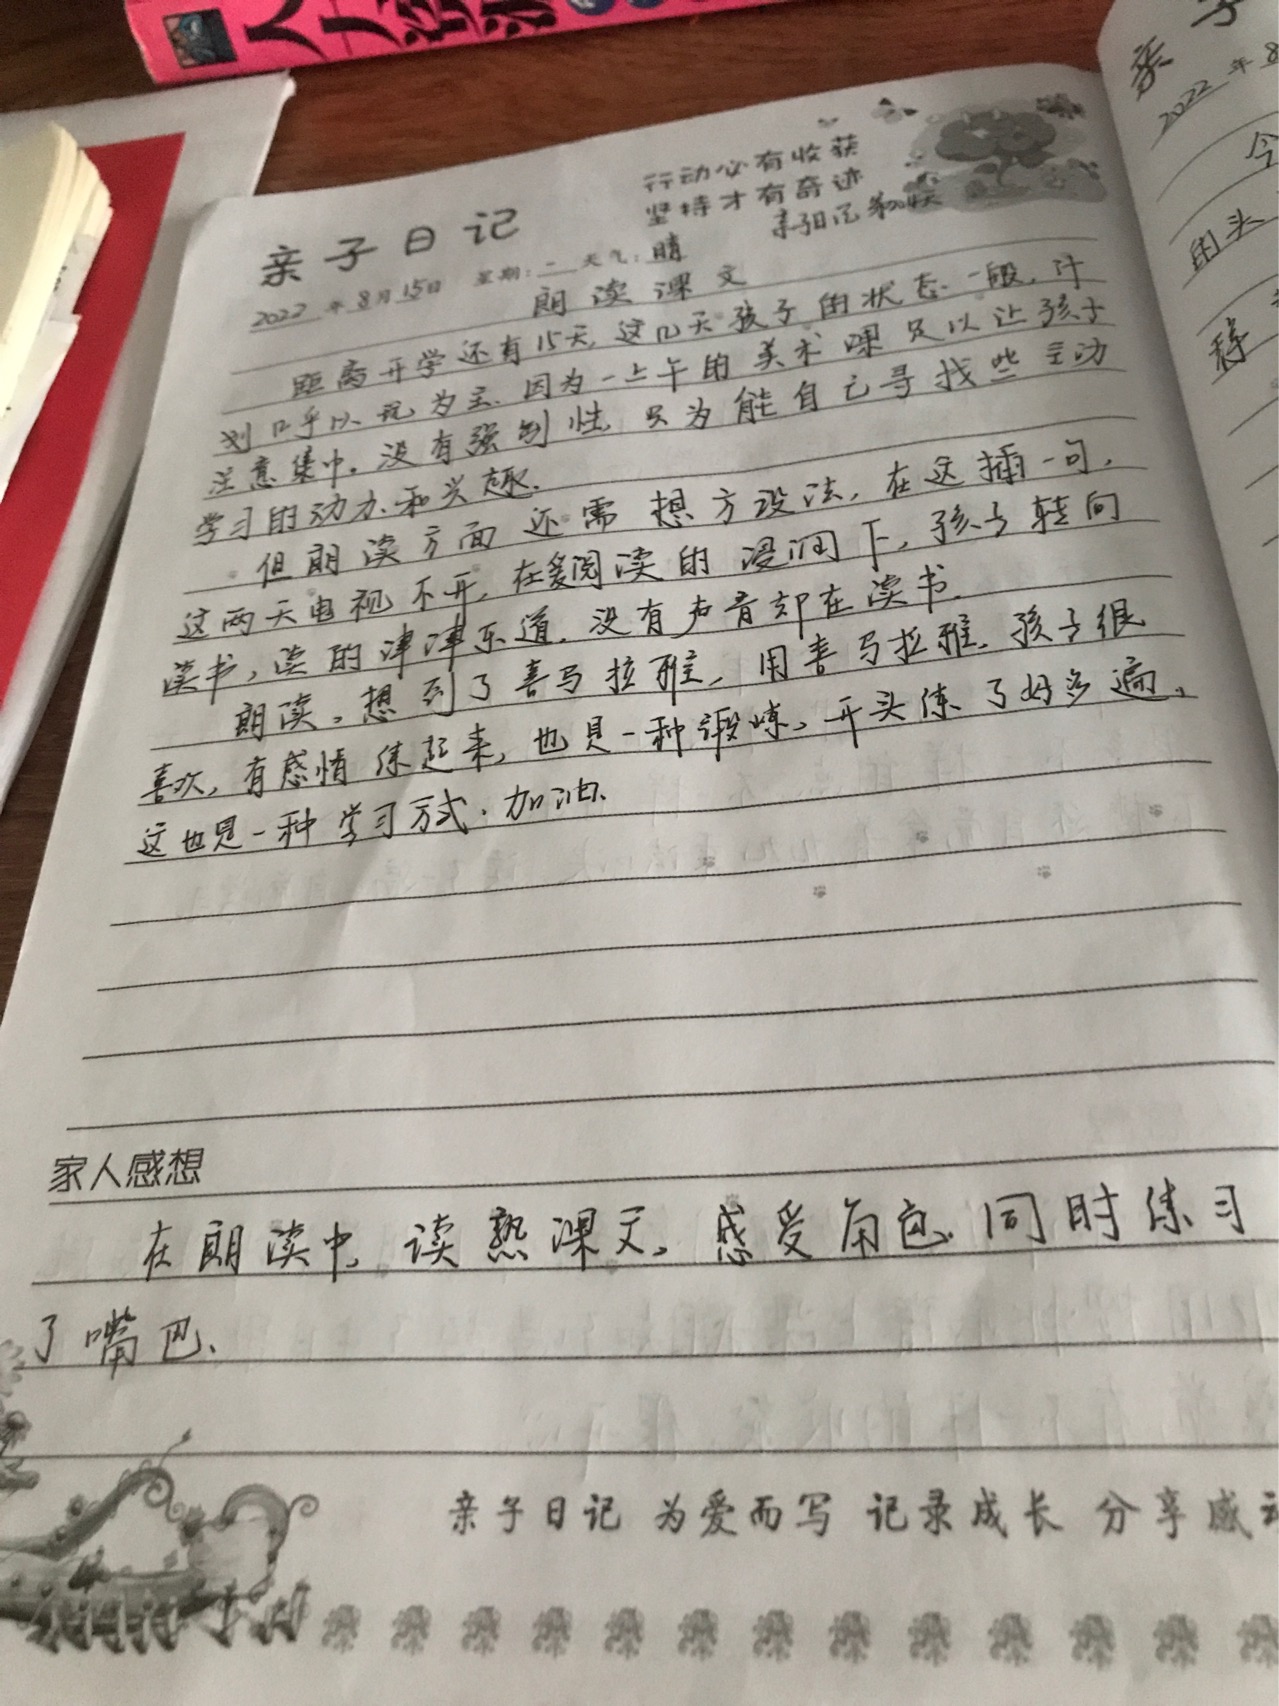 行动必有收获
坚持才有奇迹
亲子日记
亲子日记 第204天
2022年8月15日 星期:二 天气:晴
朗读课文
距离开学还有15天,这几天孩子的状态一般,计
划几乎以玩为主.因为一上午的美术课足以让孩子
注意集中。没有强制性,只为能自己寻找些主动
学习的动力和兴趣.
但朗读方面还需想方设法,在这插一句,
这两天电视不开,在爱阅读的浸润下,孩子转向
读书,读的津津乐道.没有声音却在读书.
朗读,想到了喜马拉雅,用喜马拉雅.孩子很
喜欢,有感情练起来,也是一种锻炼,开头练了好多遍,
这也是一种学习方式.加油.
家人感想
在朗读中,读熟课文,感受角色.同时练习
了嘴巴.
亲子日记 为爱而写 记录成长 分享感
亲子
2022年8
今
的头